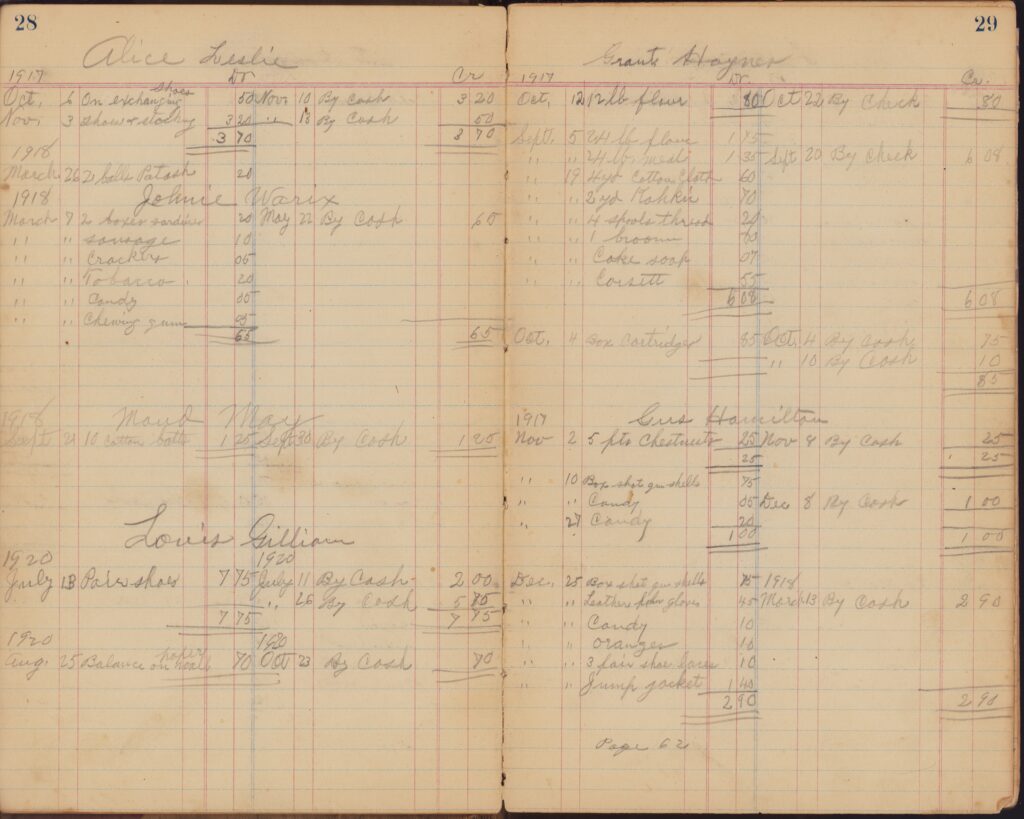 28
Alice Leslie
1917 Dr Cr
Shoes
Oct. 6 On exchanging 50 Nov. 10 By Cash 3 20
Nov. 3 Shoes & stocking 3 20 " 18 By Cash 50
3 70 3 70
1918
March 26 2 balls Potash 20
1918 Johnie Warix
March 7 2 boxes sardines 20 May 22 By Cash 60
" " sausage 10
" " Crackers 05
" " Tobacco 20
" " Candy 05
" " Chewing gum 05
65 65
1918 Maud May
Sept 21 10 Cotton batts 1 25 Sept 30 By Cash 1 25
Louis Gilliam
1920 1920
July 13 Pair shoes 7 75 July 11 By Cash 2 00
" 26 By Cash 5 75
7 75 7 75
1920 1920
Aug. 25 Balance on 70 Oct 23 By Cash 70
29
Grant Haynes
1917 Dr. Cr.
Oct. 12 12 lb flour 80 Oct 22 By Check 80
Sept. 5 24 lb flour 1 75
" " 24 lb. meal 1 35 Sept 20 By Check 6 08
" 19 4 yd Cotton Cloth 60
" " 2 yd Kahkir 70
" " 4 spools thread
" " 1 broom
" " Cake soap 07
" " Corsett 55
6 08 6 08
Oct. 4 Box Cartridges 85 Oct. 4 By Cash 75
" 10 By Cash 10
85
1917 Gus Hamilton
Nov 2 5 pts Chestnuts 25 Nov 8 By Cash 25
25 25
" 10 Box shot gun shells 75
" " Candy 05 Dec 8 By Cash 1 00
" 27 Candy 20
1 00 1 00
Dec. 25 Box shot gun shells 75 1918
" " Leather gloves 45 March 13 By Cash 2 90
" " Candy 10
" " Oranges 10
" " 3 pair shoe laces 10
" " Jump jacket 1 40
2 90 2 90
Page 62